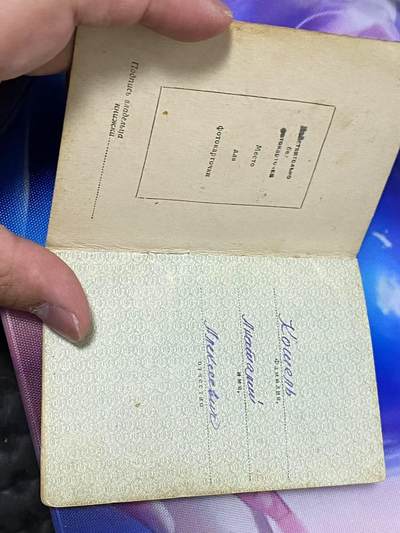 Действительно
без
фотокарточки
Место
для
фотокарточки
Подпись владельца
книжки
Кошель
фамилия,
Анатолий
имя,
Алексеевич
отчество